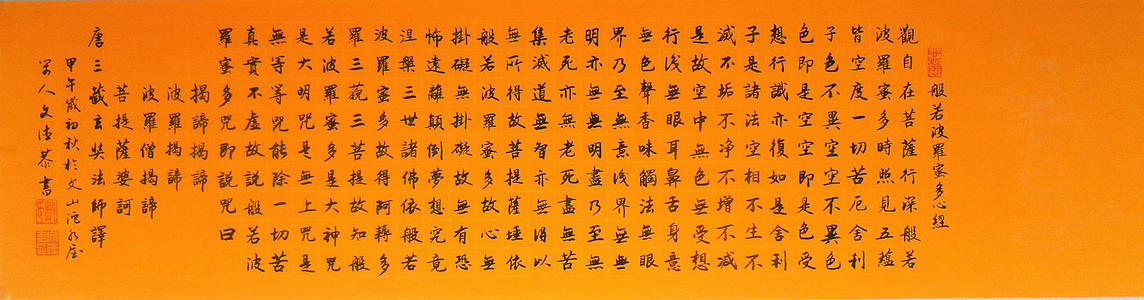 般若波羅蜜多心經
觀自在菩薩行深般若
波羅蜜多時照見五蘊
皆空度一切苦厄舍利
子色不異空空不異色
色即是空空即是色受
想行識亦復如是舍利
子是諸法空相不生不
滅不垢不淨不增不減
是故空中無色無受想
行識無眼耳鼻舌身意
無色聲香味觸法無眼
界乃至無意識界無無
明亦無無明盡乃至無
老死亦無老死盡無苦
集滅道無智亦無得以
無所得故菩提薩埵依
般若波羅蜜多故心無
掛礙無掛礙故無有恐
怖遠離顛倒夢想究竟
涅槃三世諸佛依般若
波羅蜜多故得阿耨多
羅三藐三菩提故知般
若波羅蜜多是大神咒
是大明咒是無上咒是
無等等咒能除一切苦
真實不虛故說般若波
羅蜜多咒即說咒曰
揭諦揭諦
波羅揭諦
波羅僧揭諦
菩提薩婆訶
唐三藏玄奘法師譯
甲午歲初秋於文山
人文恭書